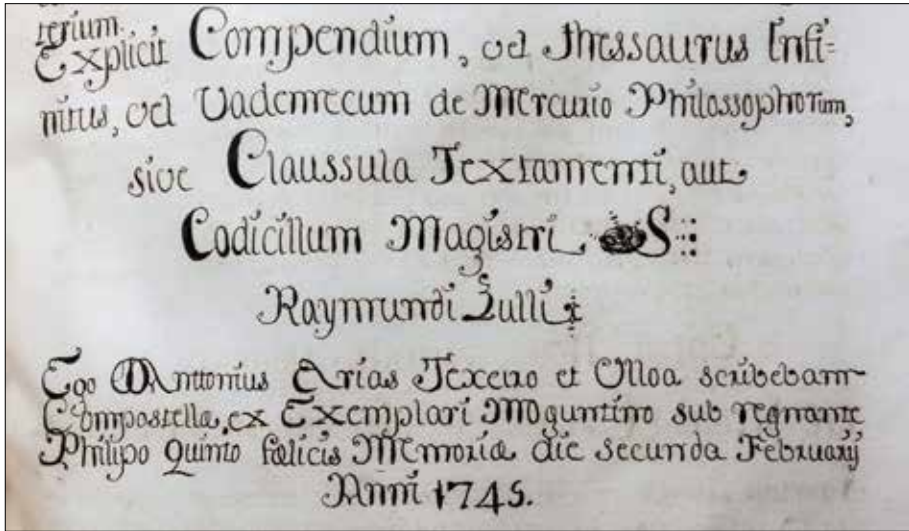 terium.
Explicit Compendium, vel Thessaurus Infi=
nitus, vel Vademecum de Mercurio Philossophorum,
sive Claussula Textamenti, aut
Codicillum Magistri S
Raymundi Lulli
Ego Anttonius Arias Texeiro et Ulloa scribebam
Compostella, ex Exemplari Moguntino sub regnante
Philipo Quinto fœlicis Memoriæ die secunda Februarij
Anni 1745.